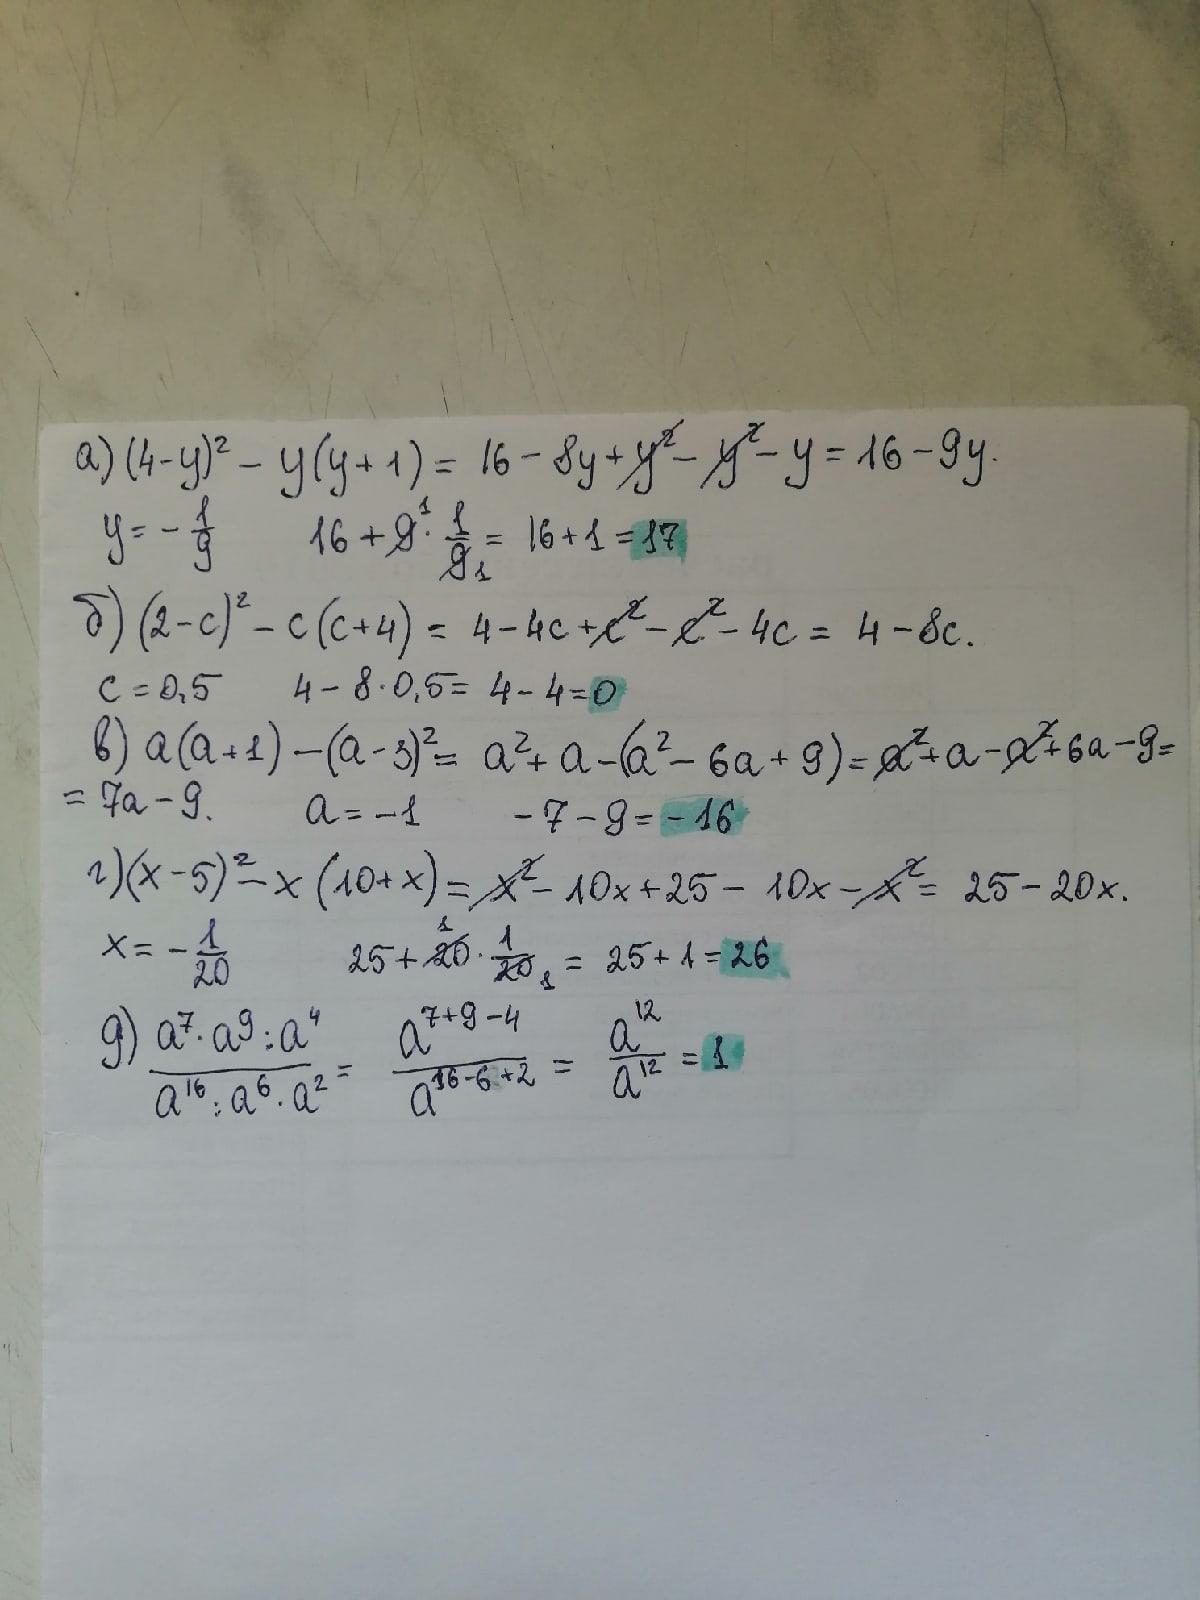 а) (4-y)² - y(y+1) = 16 - 8y + y² - y² - y = 16 - 9y.
y = - 1/9 16 + 9¹ · 1/9₁ = 16 + 1 = 17
б) (2-c)² - c(c+4) = 4 - 4c + c² - c² - 4c = 4 - 8c.
c = 0,5 4 - 8 · 0,5 = 4 - 4 = 0
в) a(a+1) - (a-3)² = a² + a - (a² - 6a + 9) = a² + a - a² + 6a - 9 =
= 7a - 9. a = -1 -7 - 9 = -16
г) (x-5)² - x(10+x) = x² - 10x + 25 - 10x - x² = 25 - 20x.
x = - 1/20 25 + 20¹ · 1/20₁ = 25 + 1 = 26
д) a⁷ · a⁹ : a⁴ / a¹⁶ : a⁶ · a² = a⁷⁺⁹⁻⁴ / a¹⁶⁻⁶⁺² = a¹² / a¹² = 1